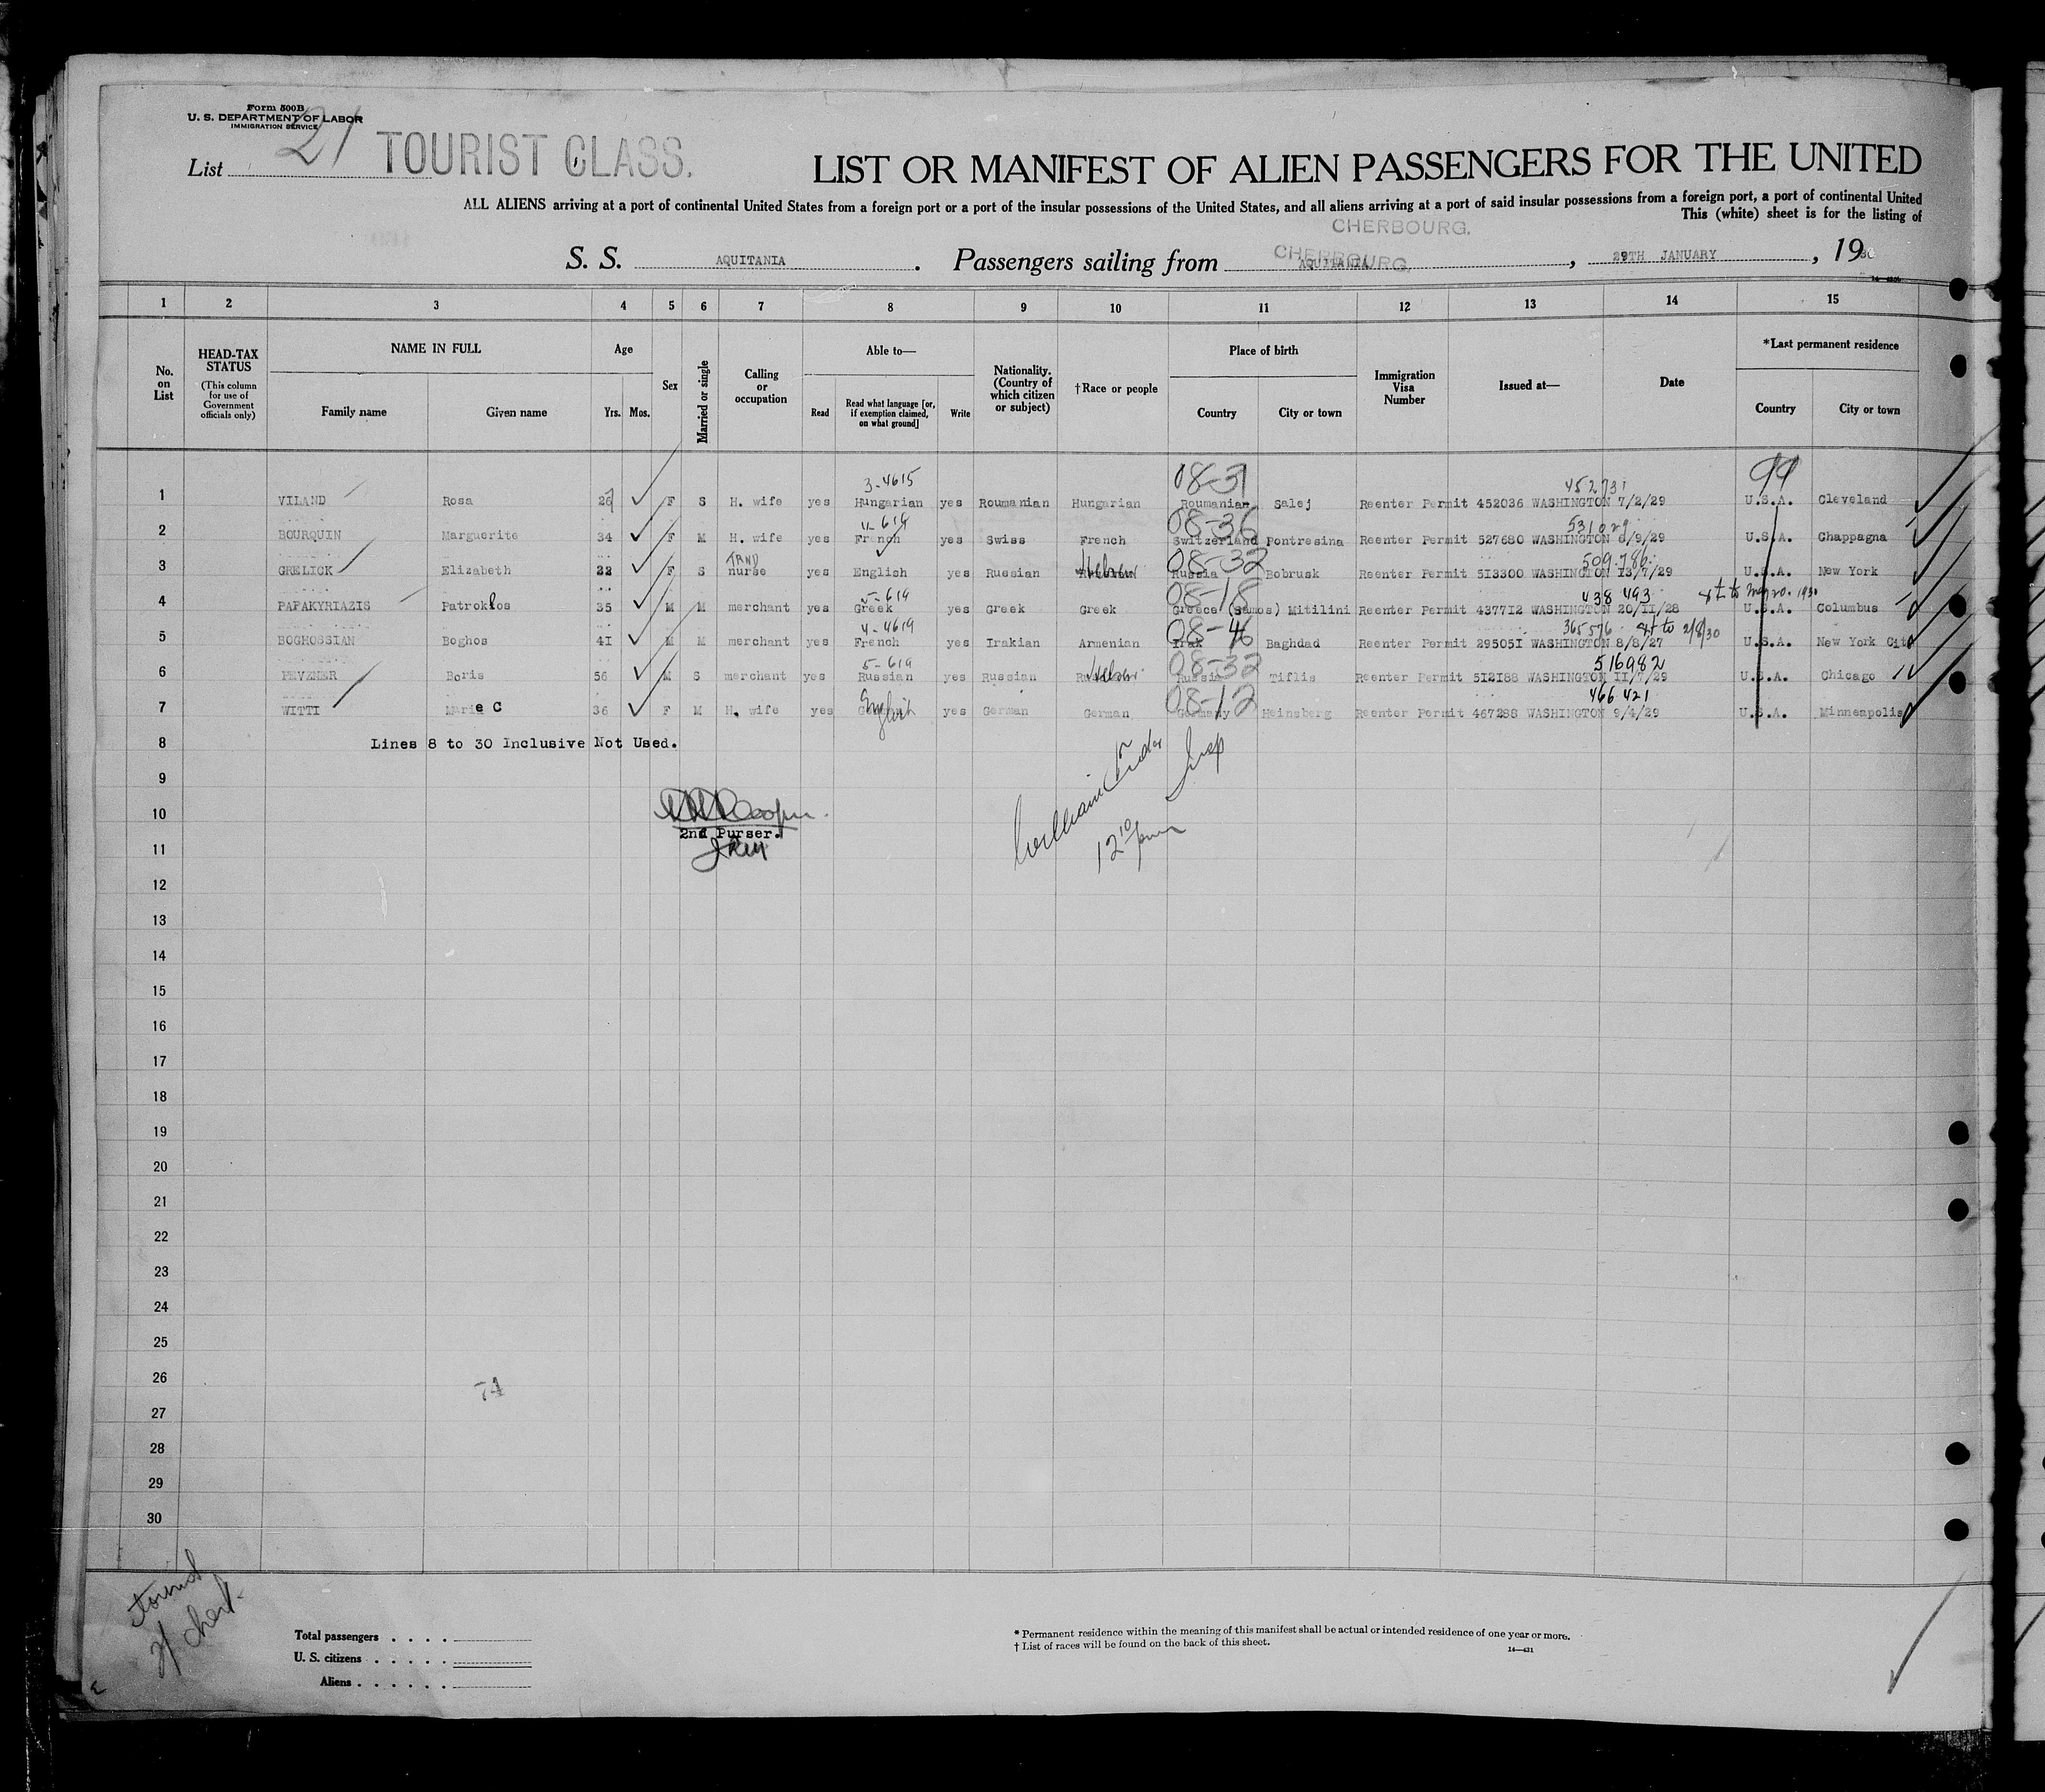 Form 500B
U. S. DEPARTMENT OF LABOR
IMMIGRATION SERVICE
List 21 TOURIST CLASS.
LIST OR MANIFEST OF ALIEN PASSENGERS FOR THE UNITED
ALL ALIENS arriving at a port of continental United States from a foreign port or a port of the insular possessions of the United States, and all aliens arriving at a port of said insular possessions from a foreign port, a port of continental United
This (white) sheet is for the listing of
CHERBOURG.
S. S. AQUITANIA. Passengers sailing from CHERBOURG, 29TH JANUARY, 1930
1 2 3 4 5 6 7 8 9 10 11 12 13 14 15
No. on List
HEAD-TAX STATUS
(This column for use of Government officials only)
NAME IN FULL
Family name Given name
Age
Yrs. Mos.
Sex
Married or single
Calling or occupation
Able to—
Read
Read what language [or, if exemption claimed, on what ground]
Write
Nationality. (Country of which citizen or subject)
†Race or people
Place of birth
Country City or town
Immigration Visa Number
Issued at—
Date
*Last permanent residence
Country City or town
3-4615 08-31 452731 99
1 VILAND Rosa 26 F S H. wife yes Hungarian yes Roumanian Hungarian Roumanian Salej Reenter Permit 452036 WASHINGTON 7/2/29 U.S.A. Cleveland
08-36 531029
2 BOURQUIN Marguerite 34 F M H. wife yes French yes Swiss French Switzerland Pontresina Reenter Permit 527680 WASHINGTON 6/9/29 U.S.A. Chappagna
08-32 509786
3 GRELICK Elizabeth 22 F S nurse yes English yes Russian Hebrew Russia Bobrusk Reenter Permit 513300 WASHINGTON 13/7/29 U.S.A. New York
5-619 08-18 438493
4 PAPAKYRIAZIS Patroklos 35 M M merchant yes Greek yes Greek Greek Greece (Samos) Mitilini Reenter Permit 437712 WASHINGTON 20/11/28 U.S.A. Columbus
4-4619 08-46 365576 to 2/8/30
5 BOGHOSSIAN Boghos 41 M M merchant yes French yes Irakian Armenian Irak Baghdad Reenter Permit 295051 WASHINGTON 8/8/27 U.S.A. New York City
5-619 08-32 516982
6 PEVZNER Boris 56 M S merchant yes Russian yes Russian Hebrew Russia Tiflis Reenter Permit 512188 WASHINGTON 11/7/29 U.S.A. Chicago
08-12 466421
7 WITTI Marie C 36 F M H. wife yes English yes German German Germany Heinsberg Reenter Permit 467288 WASHINGTON 9/4/29 U.S.A. Minneapolis
8 Lines 8 to 30 Inclusive Not Used.
9
10
2nd Purser.
11
12 10 pm
12
13
14
15
16
17
18
19
20
21
22
23
24
25
26
74
27
28
29
30
Total passengers
U. S. citizens
Aliens
* Permanent residence within the meaning of this manifest shall be actual or intended residence of one year or more.
† List of races will be found on the back of this sheet.
14—431